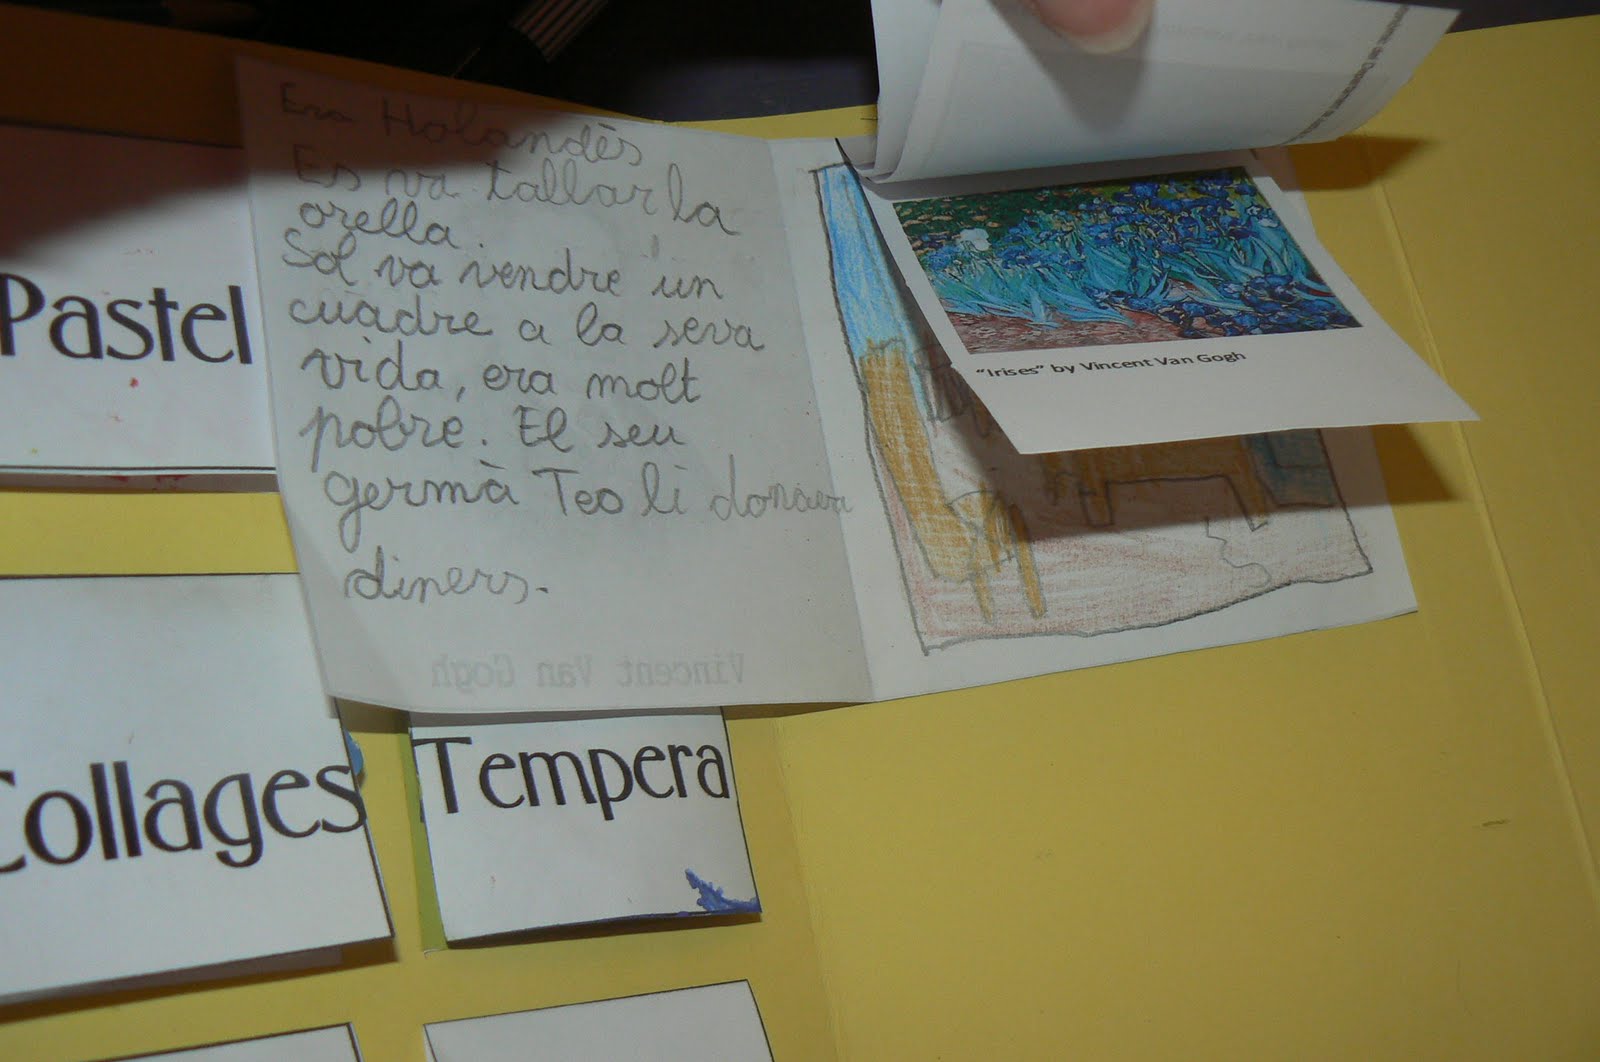 Era Holandès
Es va tallar la
orella.
Sol va vendre un
cuadre a la seva
vida, era molt
pobre. El seu
germà Teo li donava
diners.
Vincent Van Gogh
"Irises" by Vincent Van Gogh
Pastel
Collages
Tempera